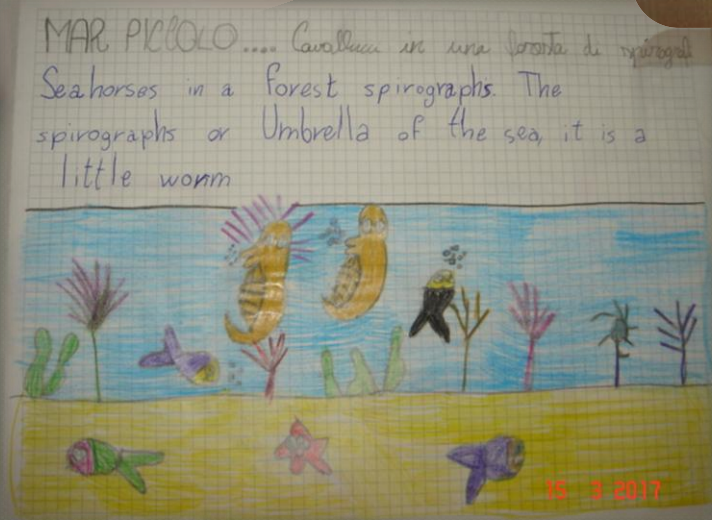 MAR PICCOLO.... Cavallucci in una foresta di spirografi
Seahorses in a forest spirographs. The
spirographs or Umbrella of the sea, it is a
little worm
15 3 2017